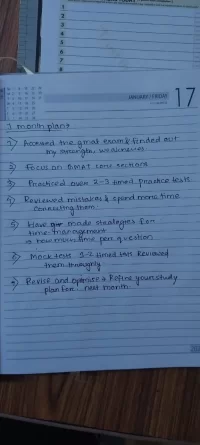 1
2
3
4
5
6
7
8
JANUARY / FRIDAY
17
1 month plan:
1) Accessed the gmat exam & finded out
my strengths, weaknesses
2) Focus on GMAT core sections
3) Practiced over 2-3 timed practice tests
4) Reviewed mistakes & spend more time
correcting them.
5) Have made strategies for
time management
→ how much time per question
6) Mock tests 1-2 timed tests Reviewed
them throughly
7) Revise and optimise & Refine your study
plan for next month